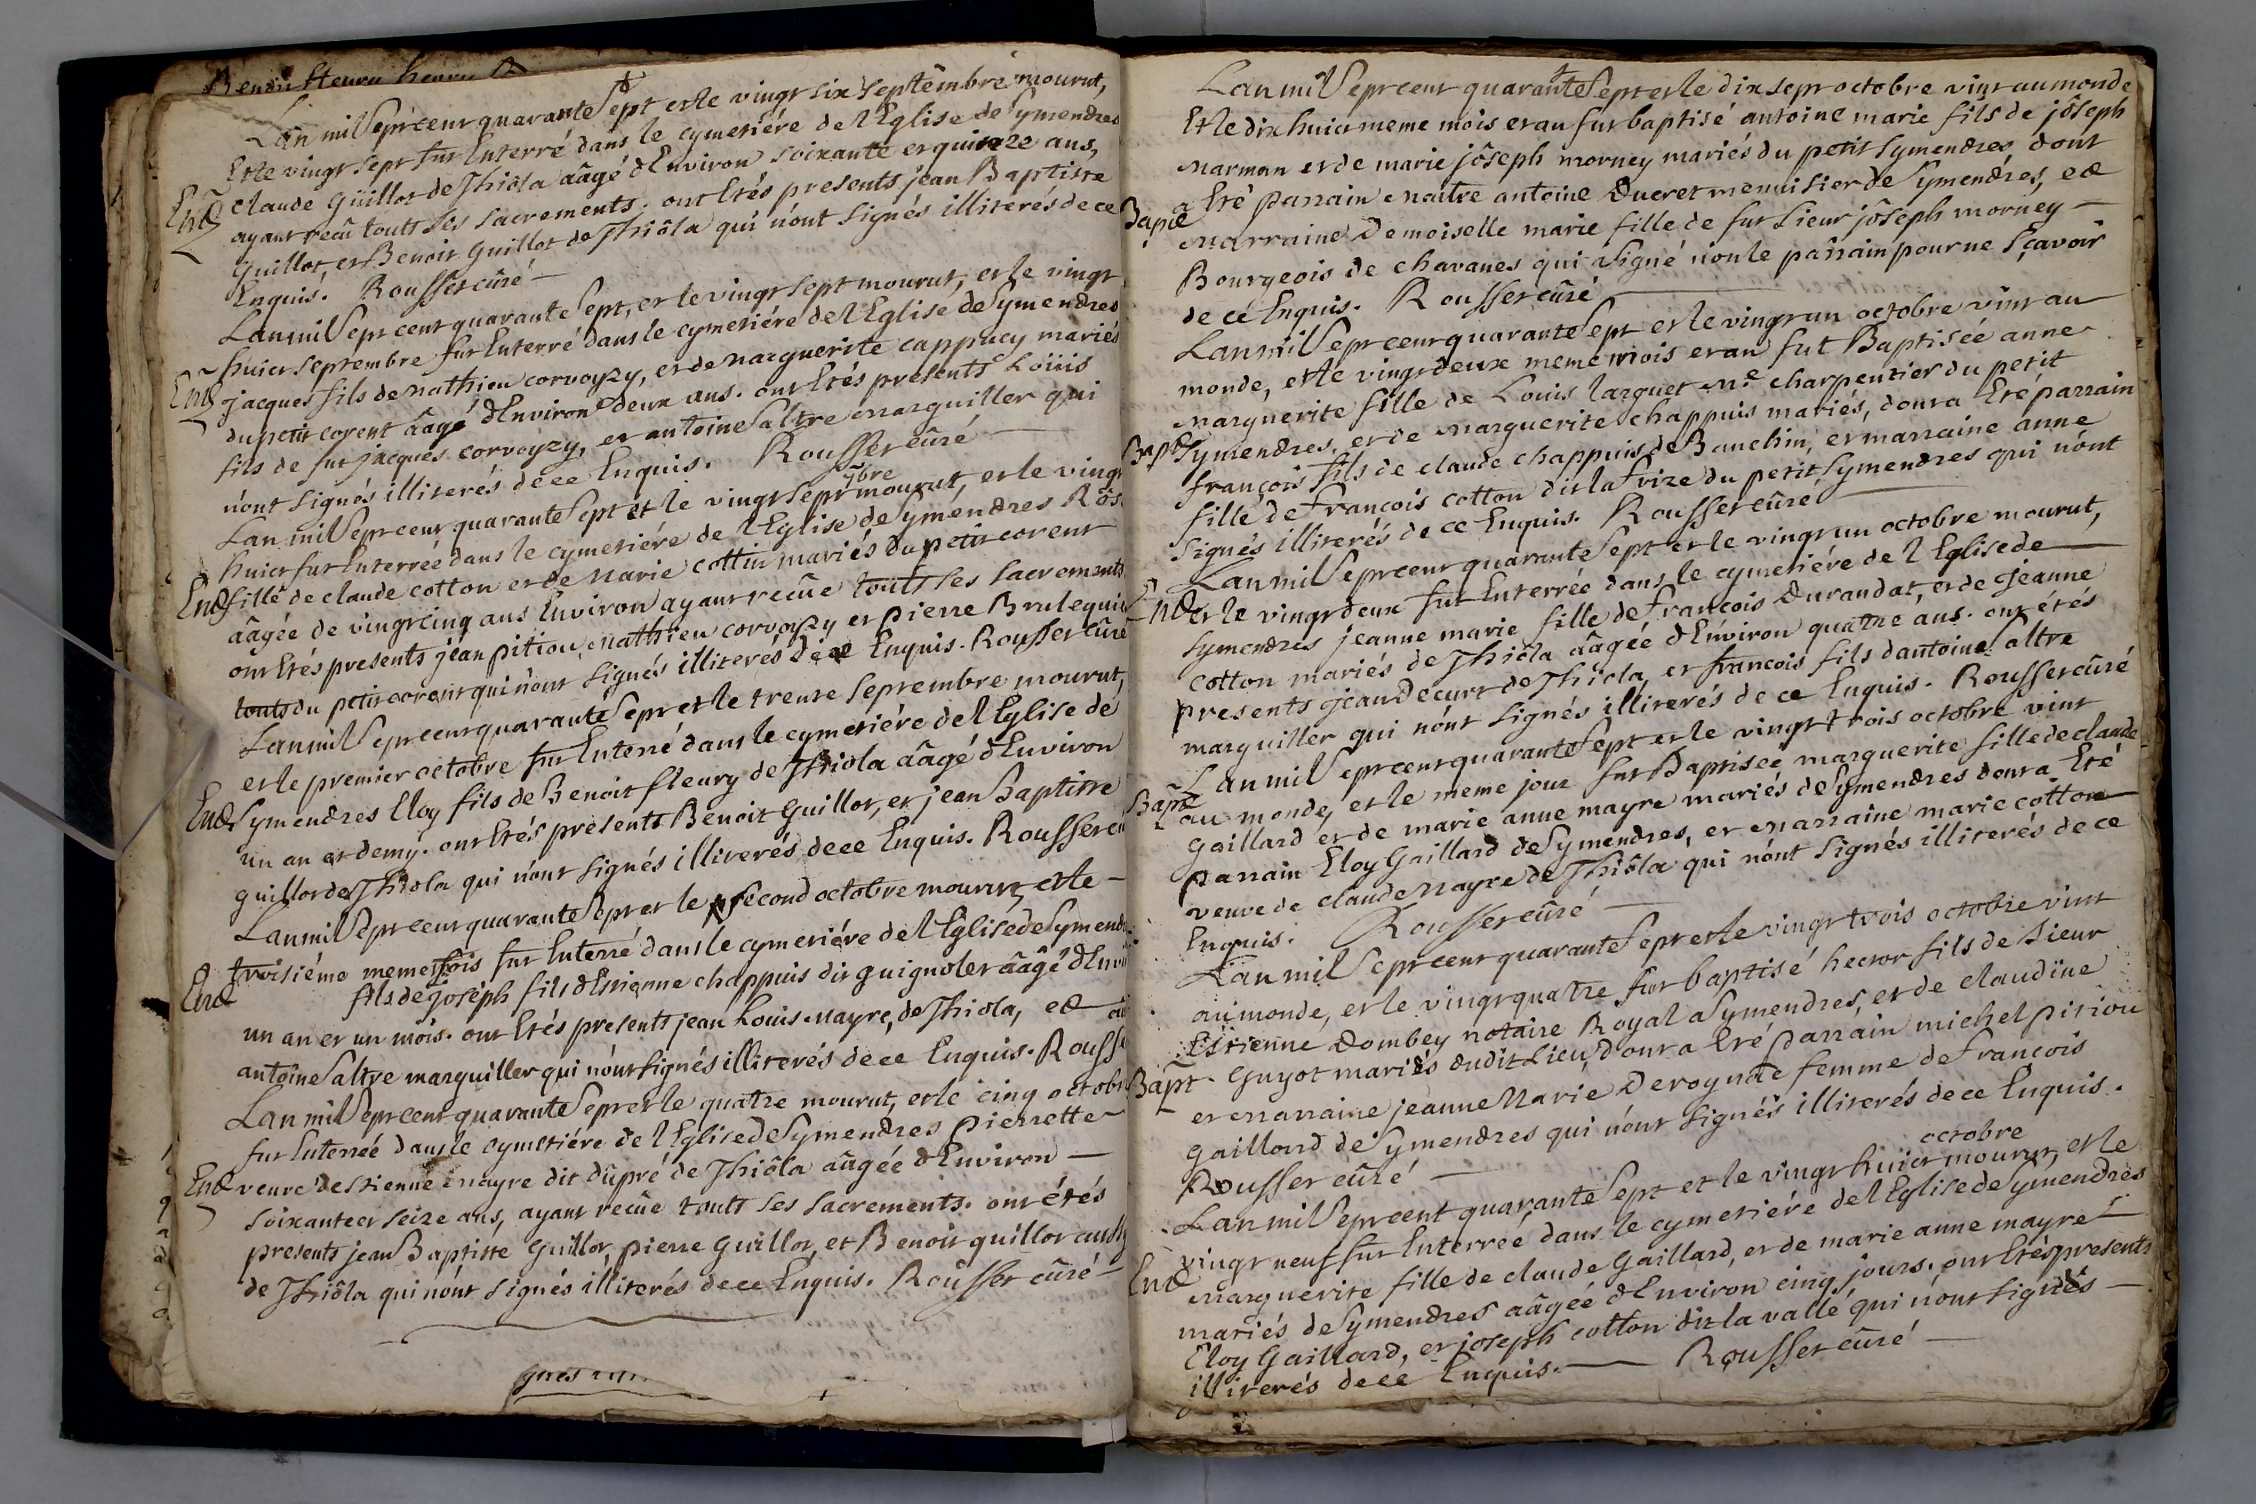 Benoit Henry henry
Lan mil Sept cent quarante Sept et le vingt six septembre mourut,
Et le vingt sept fut Enterré dans le cymetiére de l Eglise de Symendres
claude Guillot de Thiôla âagé d'Environ soixante et quinze ans,
Ent
ayant recû touts ses sacrements. ont Etés presents jean Baptiste
Guillot, et Benoit Guillot de Thiôla qui n'ont signés illiterés de ce
Enquis. Rousset cûré
Lan mil Sept cent quarante Sept, et le vingt sept mourut, et le vingt
huict septembre fut Enterré dans le cymetiére de l Eglise de Symendres
Ent
jacques fils de Mathieu corvoyzy, et de Marguerite cappucy mariés
du petit corent âagé d'Environ deux ans. ont Etés presents Loüis
fils de fut jacques corvoyzy, et antoine Saltre Marguiller qui
n'ont signés illiterés de ce Enquis. Rousset cûré
7bre
Lan mil Sept cent quarante Sept et le vingt sept mourut, et le vingt
huict fut Enterrée dans le cymetiére de l Eglise de Symendres Rôs.
Ent
fille de claude cotton et de Marie cottin mariés du petit corent
âagée de vingt cinq ans Environ ayant recûe touts ses sacrements.
ont Etés presents jean pitiou, Mathieu corvoyzy et pierre Brulequi
touts du petit corent qui n'ont signés illiterés de ce Enquis. Rousset cûré
Lan mil Sept cent quarante Sept et le trente septembre mourut,
et le premier octobre fut Enterré dans le cymetiére de l Eglise de
Ent
Symendres Eloy fils de Benoit fleury de Thiola âagé d'Environ
un an et demy. ont Etés presents Benoit Guillot, et jean Baptiste
guillot de Thiola qui n'ont signés illiterés de ce Enquis. Rousset cû
Lan mil Sept cent quarante Sept et le second octobre mourut, et le
troisiéme meme mois fut Enterré dans le cymetiére de l Eglise de Symend
Ent
fils de joseph fils d'Etienne chappuis dit guignolet âagé d'Envi
un an et un mois. ont Etés presents jean Louis Mayre, de Thiola, et
antoine Saltre marguiller qui n'ont signés illiterés de ce Enquis. Rousse
Lan mil Sept cent quarante Sept et le quatre mourut, et le cinq octobre
fut Enterrée dans le cymetiére de l Eglise de Symendres pierrette
Ent
veuve d'estienne Mayre dit dûpré de Thiôla âagée d'Environ
soixante et seize ans, ayant recûe touts ses sacrements. ont étés
presents jean Baptiste Guillot, pierre Guillot, et Benoit guillot aussy
de Thiôla qui n'ont signés illiterés de ce Enquis. Rousset cûré
Lan mil Sept cent quarante Sept et le dix sept octobre vint au monde
Et le dix huict meme mois et an fut baptisé antoine marie fils de jôseph
Marmon et de marie jôseph morney mariés du petit Symendres dont
a Eté parrain Maitre antoine Ducret menuisier de Symendres, et
Bapt
Marraine Demoiselle marie fille de fut Sieur jôseph morney
Bourgeois de chavanes qui a signé non le parrain pour ne Sçavoir
de cé Enquis. Rousset cûré
Lan mil Sept cent quarante Sept et le vingt un octobre vint au
monde, et le vingt deux meme mois et an fut Baptisée anne
Marguerite fille de Louis larguet Me charpentier du petit
Bapt
Symendres, et de Marguerite chappuis mariés, dont a Eté parrain
françois fils de claude chappuis de Banchin, et marraine anne
fille de françois cotton dit la frize du petit Symendres qui n'ont
signés illiterés de ce Enquis. Rousset cûré
Lan mil Sept cent quarante Sept et le vingt un octobre mourut,
Ent
et le vingt deux fut Enterrée dans le cymetiére de l Eglise de
Symendres jeanne marie fille de françois Durandat, et de jeanne
cotton mariés de Thiôla âagée d'Environ quatre ans. ont étés
presents jean Decurt de Thiola, et françois fils d'antoine Saltre
marguiller qui n'ont signés illiterés de ce Enquis. Rousset cûré
Lan mil Sept cent quarante Sept et le vingt trois octobre vint
Bapt
au monde, et le meme jour fut Baptisée marguerite fille de claude
gaillard et de marie anne mayre mariés de Symendres dont a Eté
parrain Eloy Gaillard de Symendres, et Marraine marie cotton
veuve de claude Mayre de Thiôla qui n'ont signés illiterés de ce
Enquis. Rousset cûré
Lan mil Sept cent quarante Sept et le vingt trois octobre vint
au monde, et le vingt quatre fut baptisé hector fils de Sieur
Estienne Dombey notaire Royal a Symendres, et de claudine
Bapt
Guyot mariés dudit Lieu, dont a Eté parrain michel pitiou
et Marraine jeanne Marie Derognat femme de françois
gaillard de Symendres qui n'ont signés illiterés de ce Enquis.
Rousset cûré
octobre
Lan mil Sept cent quarante Sept et le vingt huict mourut, et le
vingt neuf fut Enterrée dans le cymetiére de l Eglise de Symendres
Ent
Marguerite fille de claude Gaillard, et de marie anne mayre
mariés de Symendres âagée d'Environ cinq jours. ont Etés presents
Eloy Gaillard, et joseph cotton dit la vallé qui n'ont signés
illiterés de ce Enquis. Rousset cûré